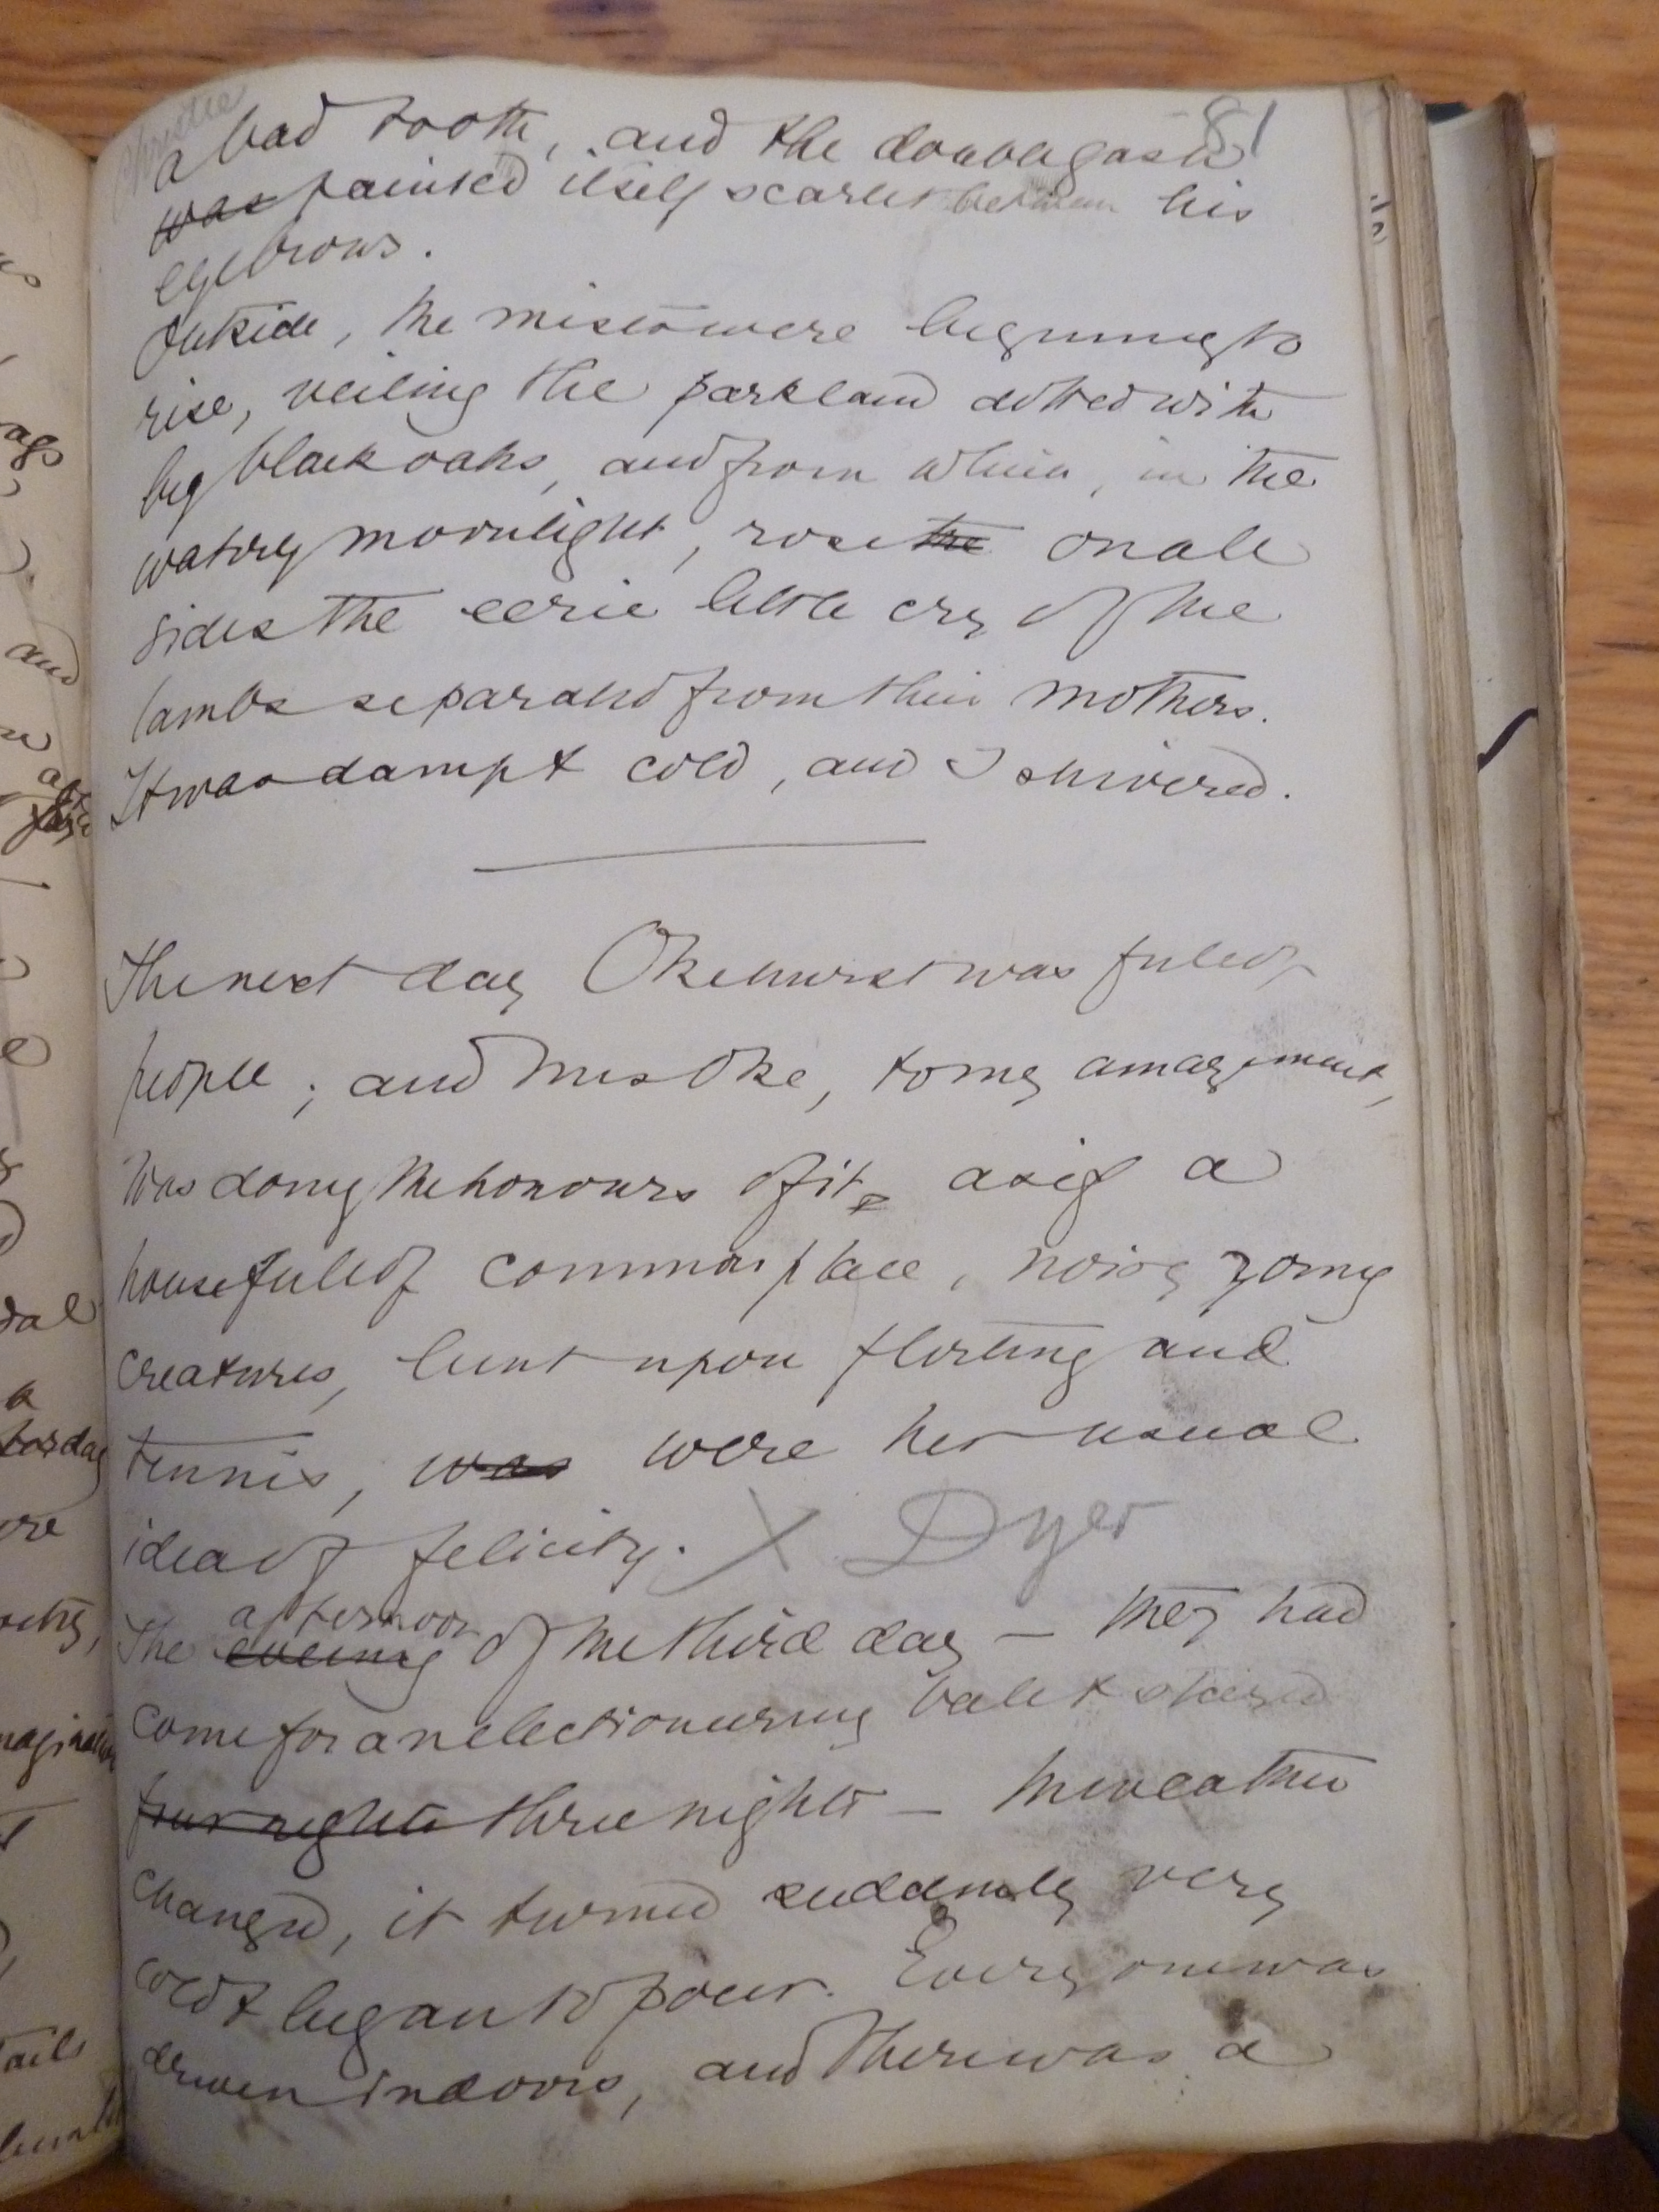 81
a bad tooth, and the double gash
was painted itself scarlet between his
eyebrows.
Outside, the mists were beginning to
rise, veiling the parkland dotted with
big black oaks, and from which, in the
watery moonlight, rose the on all
sides the eerie little cry of the
lambs separated from their mothers.
It was damp & cold, and I shivered.
The next day Okehurst was full of
people; and Mrs Oke, to my amazement,
was doing the honours of it as if a
house full of commonplace, noisy young
creatures, bent upon flirting and
tennis, was were her usual
idea of felicity. X Dyer
The evening afternoon of the third day — they had
come for an electioneering ball & stayed
four nights three nights — the weather
changed, it turned suddenly very
cold & began to pour. Every one was
driven indoors, and there was a